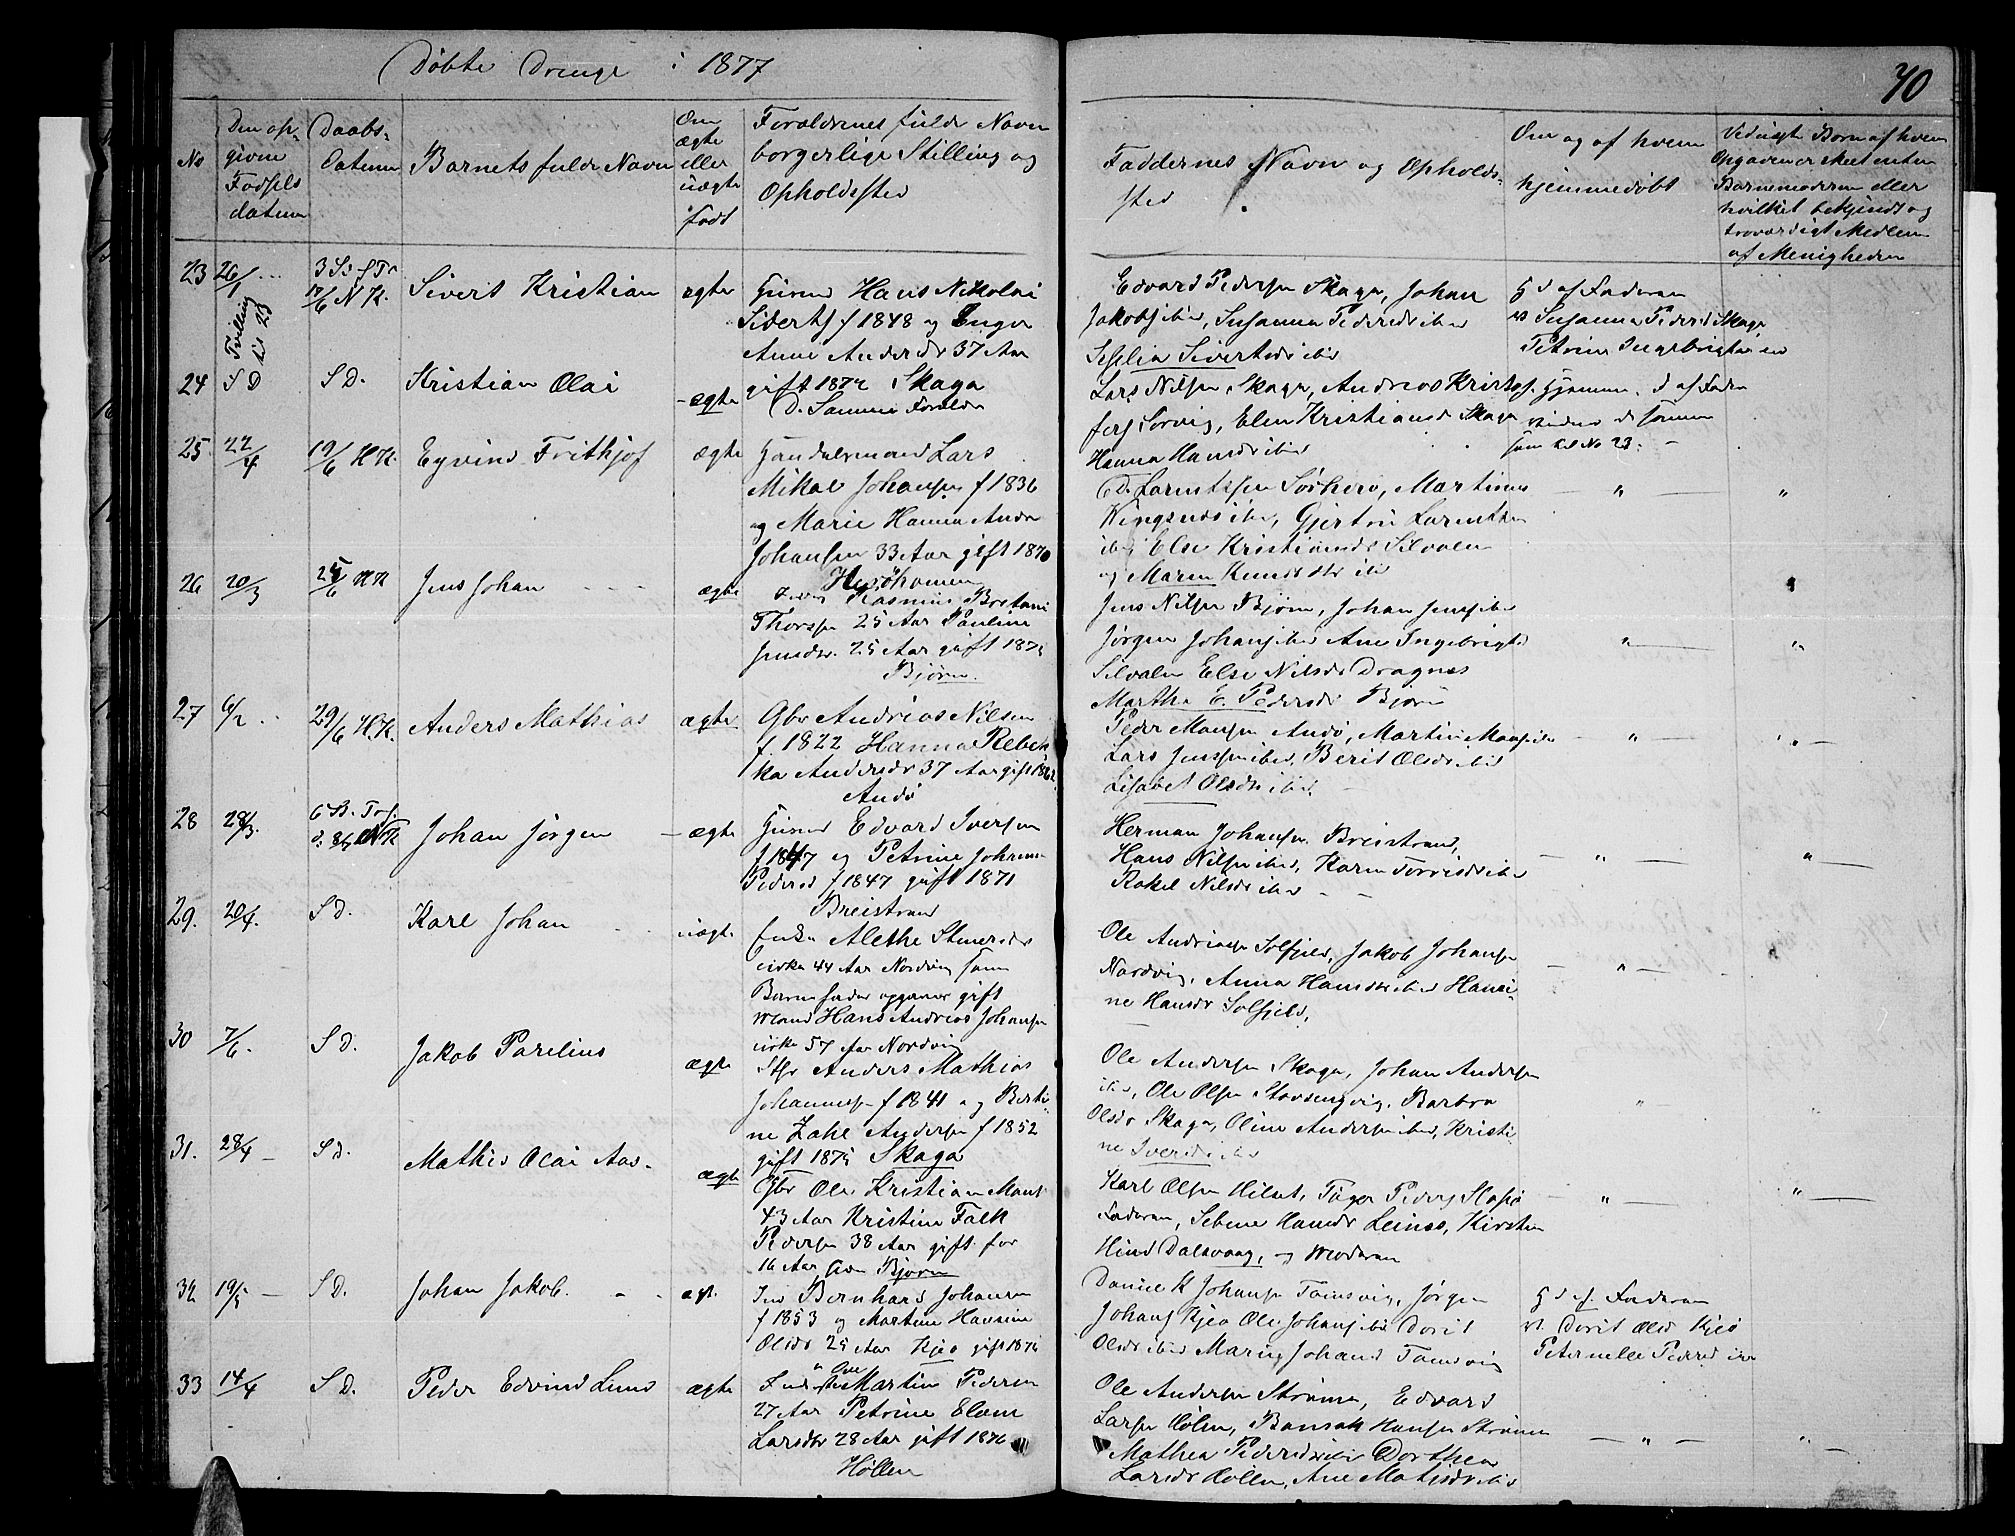 Døbte Drenge i 1877
40
No
Den op-
givne
Fødsels
datum
Daabs-
Datum
Barnets fulde Navn
Om
ægte
eller
uægte
født
Forældrenes fulde Navn
borgerlige Stilling og
Opholdssted
Faddernes Navn og Opholds-
sted
Om og af hvem
hjemmedøbt
Ved uægte Børn af hvem
Opgaven er skeet enten
Barnemoderen eller
hvilket bekjendt og
troværdigt Medlem
af Menigheden
23 26/1
3 S f Tr
17/6 N K.
Sivert Kristian
ægte
Gaurd Hans Nikolai
Sivertsf 1848 og Inger
Anne Andersdr 37 Aar
gift 1872 Skaga
Tvilling
til 23
Edvard Pedersen Skaga, Johan
Jakobs ibid, Susanna Pedersdr ibid
Seselia Sivertsdr ibid
Hd af Faderen
v. Susanna Pedersd Skaga
Petrine Ingebrigtsen
24 S D
S D.
Kristian Olai
- ægte
D. Samme Forældre
Lars Nilsen Skaga, Andreas Kristof-
fers Sørvig, Elen Kristiansd Skaga
Hanna Hansdr ibid
Hjemme d af Faderen
Vidner de samme
som til No 23.
25. 22/4
19/6 H K.
Eyvind Frithjof
ægte
Handelsmand Lars
Mikal Johansen f 1836
og Marie Hanna Andr
Johansen 33 Aar gift 1870
Herøholmen
Sørherø, Martinus
ibid, Gjertrù Larntsen
ibid Else Kristiansd Silvalen
og Maren Knudsdr ibid
— " —
"
26 20/3
25/6 H K
Jens Johan
ægte
Rasmus Bostani
Thorsen 25 Aar Pauline
Jensdr. 25 Aar gift 1875
Bjørn.
Jens Nilsen Bjørn, Johan Jens ibid
Jørgen Johans ibid Ane Ingebrigtd
Silvalen Else Nilsdr Dragnes
Martha E. Pedersdr Bjørn
" —
"
27 6/2
29/6 H.K.
Anders Mathias
ægte
Gbr Andreas Nilsen
f. 1822 Hanna Rebek-
ka Andersdr 37 Aar gift 1862
Andø
Peder Monsen Andø, Martin Mons ibid
Lars Jenssen ibid, Berit Olsdr ibid
Lisabet Olsdr ibid.
— " —
" —
28 28/3.
6 S. Tr f.
d. 8/7 NK
Johan Jørgen
— ægte
Gaurd Edvard Iversen
f 1847 og Petrine Johanna
Pedersd f 1847 gift 1871
Breistrand
Herman Johansen Breistrand,
Hans Nilsen ibid, Karen Torrisdr ibid
Rakel Nilsdr ibid
— " —
" —
29. 20/4.
S d.
Karl Johan
uægte
Enke Alethe Steensdr
cirka 44 Aar Nordvig som
Barnefader opgiver gift
Mand Hans Andreas Johansen
cirka 57 Aar Nordvig
Ole Andreasen Solfjeld, Jakob Johansen
Nordvig, Anna Hansdr ibid Hansi-
ne Hansdr Solfjeld,
— " —
30 7/6.
S d.
Jakob Parelius
ægte
Anders Mathias
Johannesen f 1841 og Berti-
ne Zahl Andersen f 1852
gift 1875 Skaga
Ole Andersen Skaga, Johan Andersen
ibid, Ole Olsen Stavsengvig, Barbra
Olsdr Skaga, Oline Andersen ibid, Kristi-
ne Iversdr ibid
"
31. 28/4 —
S d.
Mathis Olai Aas.
ægte
Gbr Ole Kristian Mons
43 Aar Kristine Falk
Pedersen 38 Aar gift for
16 Aar siden Bjørn
Karl Olsen Hilset, Peders Slapø
Faderen, Sebine Hansdr Leines, Kirsten
Hind Dalsvaag, og Moderen
— " —
" —
32 19/5 —
S d.
Johan Jakob.
ægt.
Ind Bernhard Johansen
f 1853 og Martine Hansine
Olsdr 25 Aar Kjeø gift 1875
Daniel K Johansen Tomsvig, Jørgen
Johans Kjeø Ole Johans ibid Dorit
Olsdr ibid Marie Johansd Tomsvig
Hd af. Faderen
v. Dorit Olsd Kjeø
Peternelle Pedersd ibid
33 14/4
S d.
Peder Edvind Lund
ægte
Ind Ole Martin Pedersen
27 Aar Petrine Elen
Larsdtr 28 Aar gift 1876
Høllen
Ole Andersen Strømm, Edvard
Larsen Hølen, Hansen Strømm
Mathea Pedersdr ibid Dorthea
Larsdr Hollen, Ane Matisdr ibid
— " —
" —